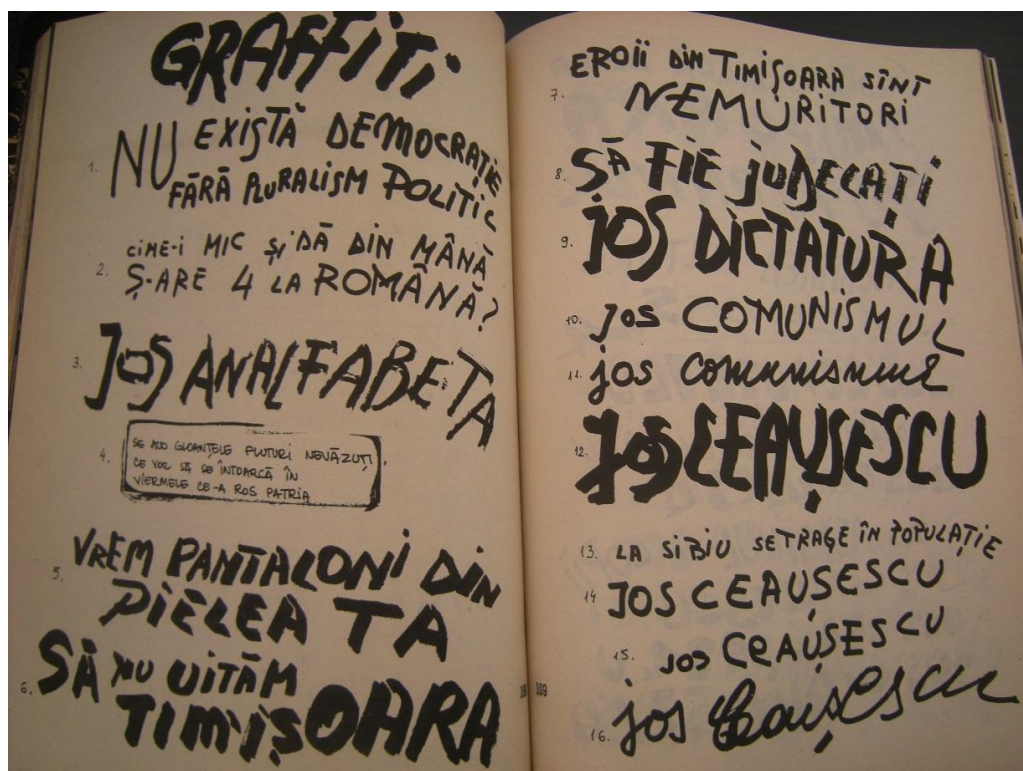 GRAFFITI
1. NU EXISTĂ DEMOCRAȚIE
FĂRĂ PLURALISM POLITIC
2. CINE-I MIC ȘI DĂ DIN MÂNĂ
Ș-ARE 4 LA ROMÂNĂ?
3. JOS ANALFABETA
4. SE AUD GLOANȚELE FLUTURI NEVĂZUȚI,
CE VOR SĂ SE ÎNTOARCĂ ÎN
VIERMELE CE-A ROS PATRIA
5. VREM PANTALONI DIN
PIELEA TA
6. SĂ NU UITĂM
TIMIȘOARA
108
109
EROII DIN TIMIȘOARA SÎNT
7. NEMURITORI
8. SĂ FIE JUDECAȚI
9. JOS DICTATURA
10. JOS COMUNISMUL
11. jos comunismul
12. JOS CEAUȘESCU
13. LA SIBIU SE TRAGE ÎN POPULAȚIE
14 JOS CEAUȘESCU
15. JOS CEAUȘESCU
16. jos Ceaușescu